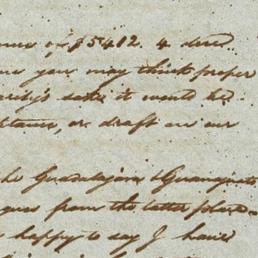 of $5402. 4 dired
you may think proper
sake it would be
or draft on our
the Guadalajara & Guanajuato
from the latter place
happy to say I have